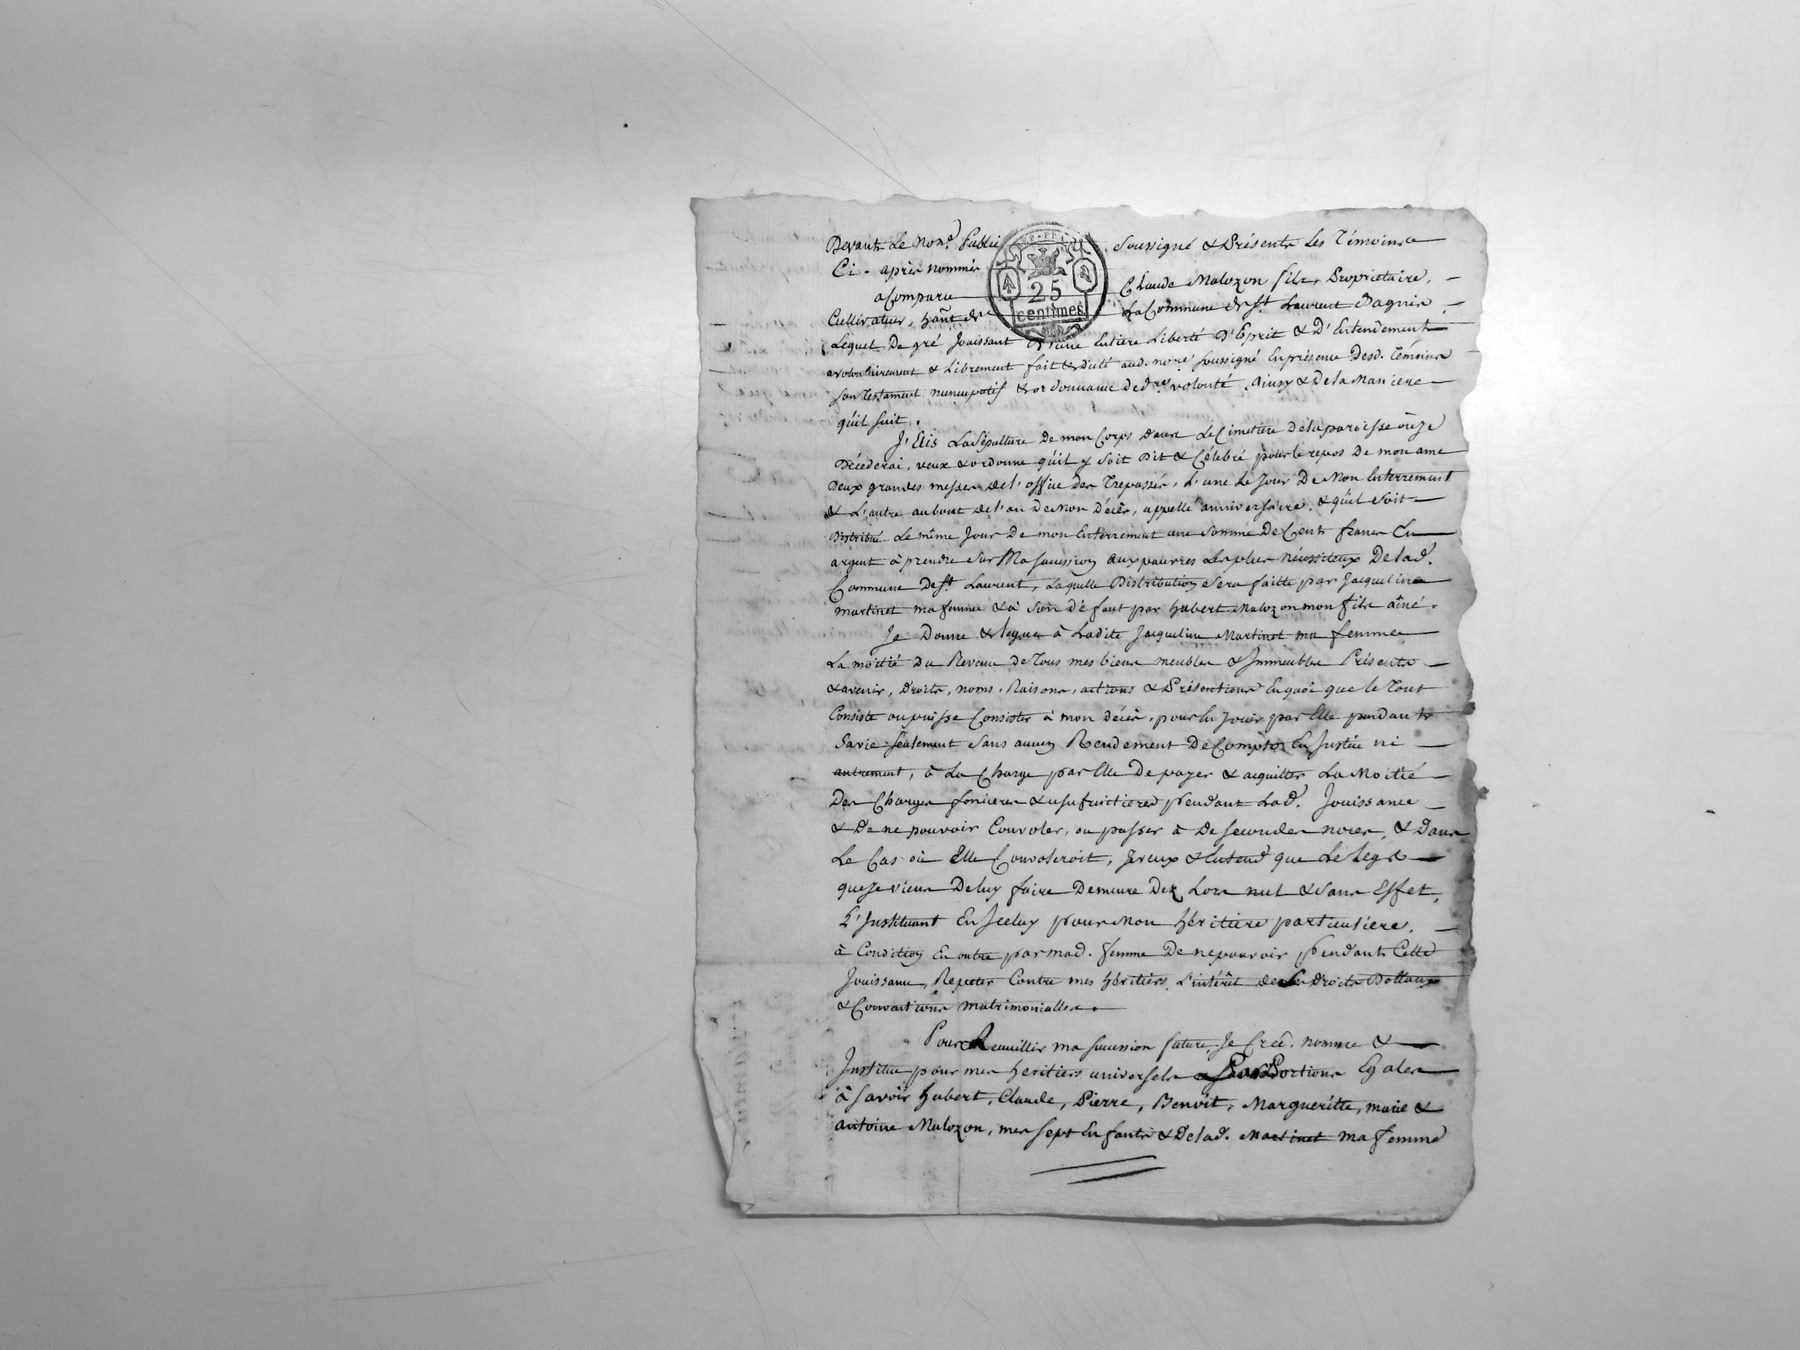 Devant Le Nore. Public soussigné & Présents Les Témoins
Ci-après nommés
REP. FRA.
25
centimes
a Comparu Claude Malozon fils, Propriétaire,
Cultivateur, hant. de La Commune de St. Laurent Dagnin
Lequel De gré Jouissant d'une Entiere Liberté D'Esprit & D'Entendement
avolontairement & Librement fait & dicté aud. nore. soussigné En présence Desd. Témoins
son Testament nuncupatif & ordonnance de dre. volonté, Ainsy & De la Maniere
qüil suit.
J'Elis La Sépulture De mon Corps dans Le Cimetiere De la paroisse où Je
Décederai, veux & ordonne qüil y soit Dit & Célébré pour le repos De mon ame
Deux grandes messes de l'office des Trepassés, L'une Le Jour De Mon Enterrement
& L'autre au bout de l'an De Mon Décès, appellé anniversaire, & qüil soit
Distribué Le même Jour De mon Enterrement une Somme De Cent francs En
argent à prendre sur Ma succession aux pauvres Les plus nécessiteux De lad.
Commune De St. Laurent, Laquelle Distribution Sera faitte par Jacqueline
martinet ma femme & à son défaut par hubert Malozon mon fils aîné.
Je Donne & legue à Ladite Jacqueline Martinet ma femme
La moitié Du Revenu De Tous mes biens meubles & Immeubles Présents
& avenir, Droits, noms, Raisons, actions & Prétentions En quoi que le Tout
Consiste ou puisse Consister à mon décès, pour En Jouir par Elle pendant
Sa vie Seulement Sans aucun Rendement De Comptes En Justice ni
autrement, à La Charge par Elle De payer & acquitter La Moitié
Des Charges foncieres & usufruictieres pendant Lad. Jouissance
& De ne pouvoir Convoler, ou passer à De secondes noces, & Dans
Le Cas où Elle Convoleroit, Je veux & Entend que Le Legs
que Je viens De luy faire Demeure Dez Lors nul & Sans Effet,
L'Instituant En Iceluy pour Mon héritiere particuliere,
à Condition En outre par mad. femme De ne pouvoir pendant Cette
Jouissance, Repeter Contre mes héritiers, L'intérêt de Ses Droits Dottaux
& Conventions matrimonialles.
Pour Recueillir ma succession future, Je Créé, nomme &
Institue pour mes heritiers universels Par Portions Egales
à savoir hubert, Claude, Pierre, Benoît, Margueritte, marie &
antoine Malozon, mes sept Enfants & De lad. Martinet ma femme